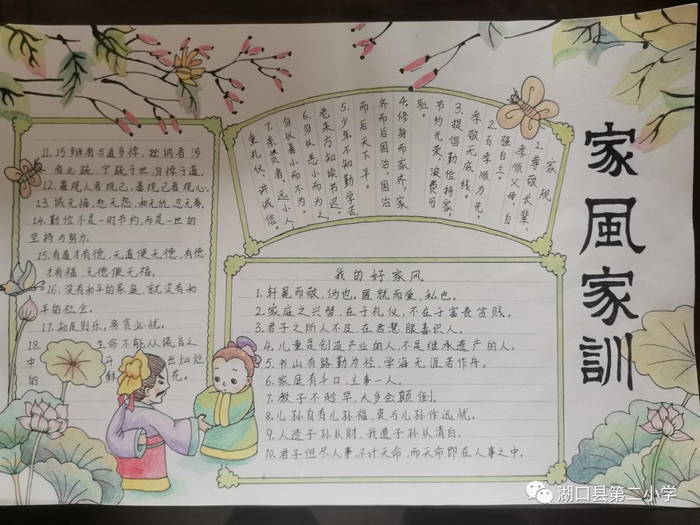 家風家訓
家规
1. 尊敬长辈、
孝顺父母，自
强自立。
2. 百孝顺为先，
孝敬无底线。
3. 提倡勤俭持家，
节约光荣，浪费可
耻。
4. 修身而家齐，家
齐而后国治，国治
而后天下平。
5. 少年不知勤学苦，
老来方知读书迟。
6. 勿以恶小而为之，
勿以善小而不为。
7. 亲贤者，远小人，
重礼仪，讲诚信。
我的好家风
1. 轩冕而敬，伪也。匿就而爱，私也。
2. 家庭之兴替，在于礼仪，不在于富贵贫贱。
3. 君子之所人不及，在君慧眼善识人。
4. 儿童是创造产业的人，不是继承遗产的人。
5. 书山有路勤为径，学海无涯苦作舟。
6. 家庭有千口，主事一人。
7. 教子不趁早，大多会颠倒。
8. 儿孙自有儿孙福，莫与儿孙作远忧。
9. 人遗子孙以财，我遗子孙以清白。
10. 君子但尽人事，不计天命，而天命即在人事之中。
11. 巧辩者与道多悖，拙讷者涉
者必疏，宁疏于世，勿悖于道。
12. 善观人者观己，善观己者观心。
13. 诚无悔，恕无怨，和无仇，忍无辱。
14. 勤俭不是一时节约，而是一世的
坚持与努力。
15. 有道才有德，无道便无德，有德
才有福，无德便无福。
16. 没有和平的家庭，就没有和
平的社会。
17. 知足则乐，务贪必忧。
18. 生命不能从谎言之
中 开 出灿烂
的 鲜 花。
湖口县第二小学